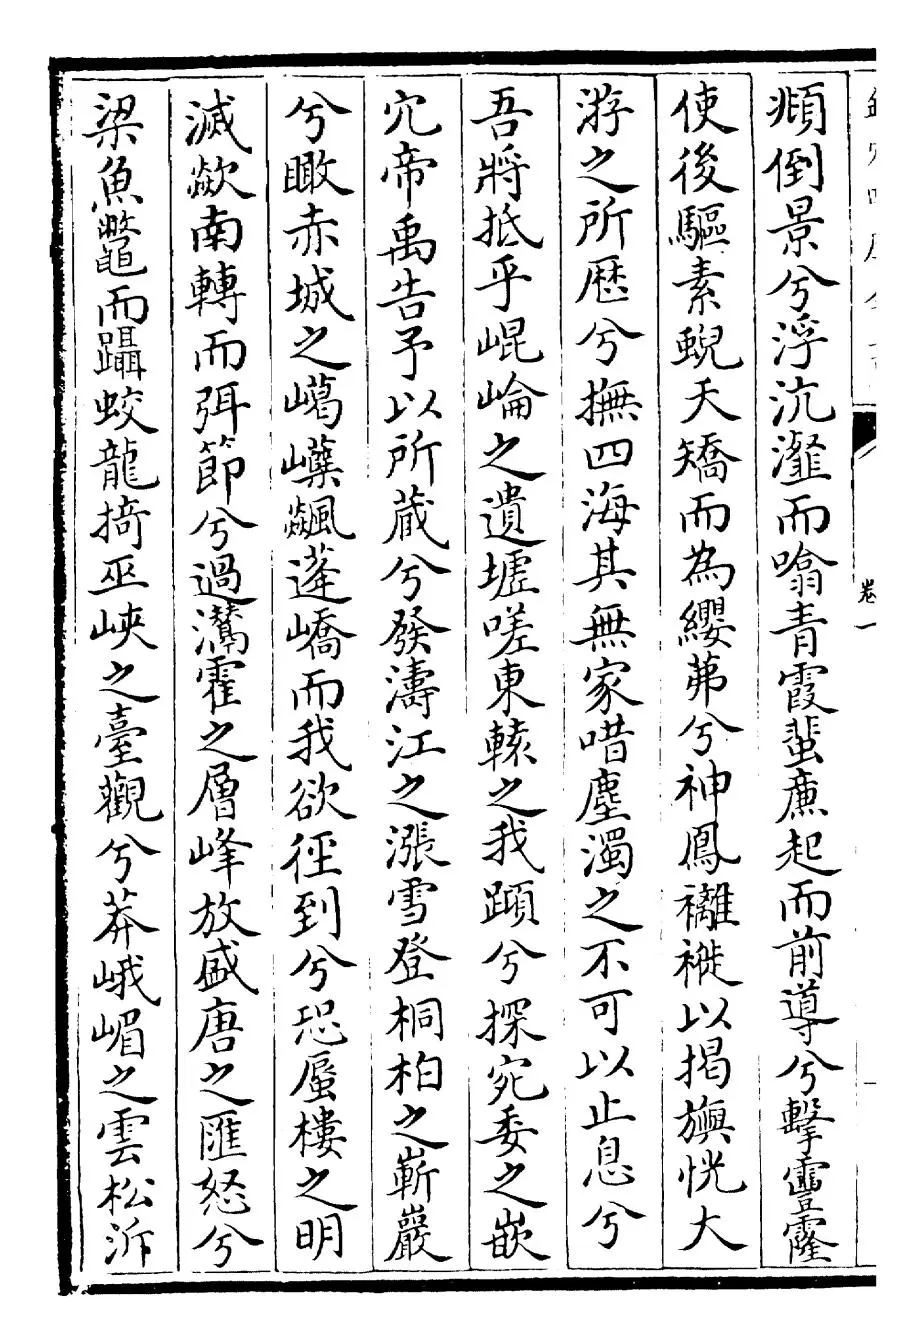 頫倒景兮浮沆瀣而噏青霞蜚亷起而前導兮擊靊霳
使後驅素蜺天矯而為纓茀兮神鳳襹褷以揭旟恍大
游之所厯兮撫四海其無家唶塵濁之不可以止息兮
吾將抵乎崐崘之遺墟嗟東轅之我躓兮探宛委之嵌
穴帝禹告予以所蔵兮發濤江之漲雪登桐柏之嶄巖
兮瞰赤城之嶱嶫飊蓬嶠而我欲徑到兮恐蜃樓之明
滅歘南轉而弭節兮過灊霍之層峰放盛唐之匯怒兮
梁魚鼈而躡蛟龍掎巫峽之臺觀兮莽峨嵋之雲松泝
卷一